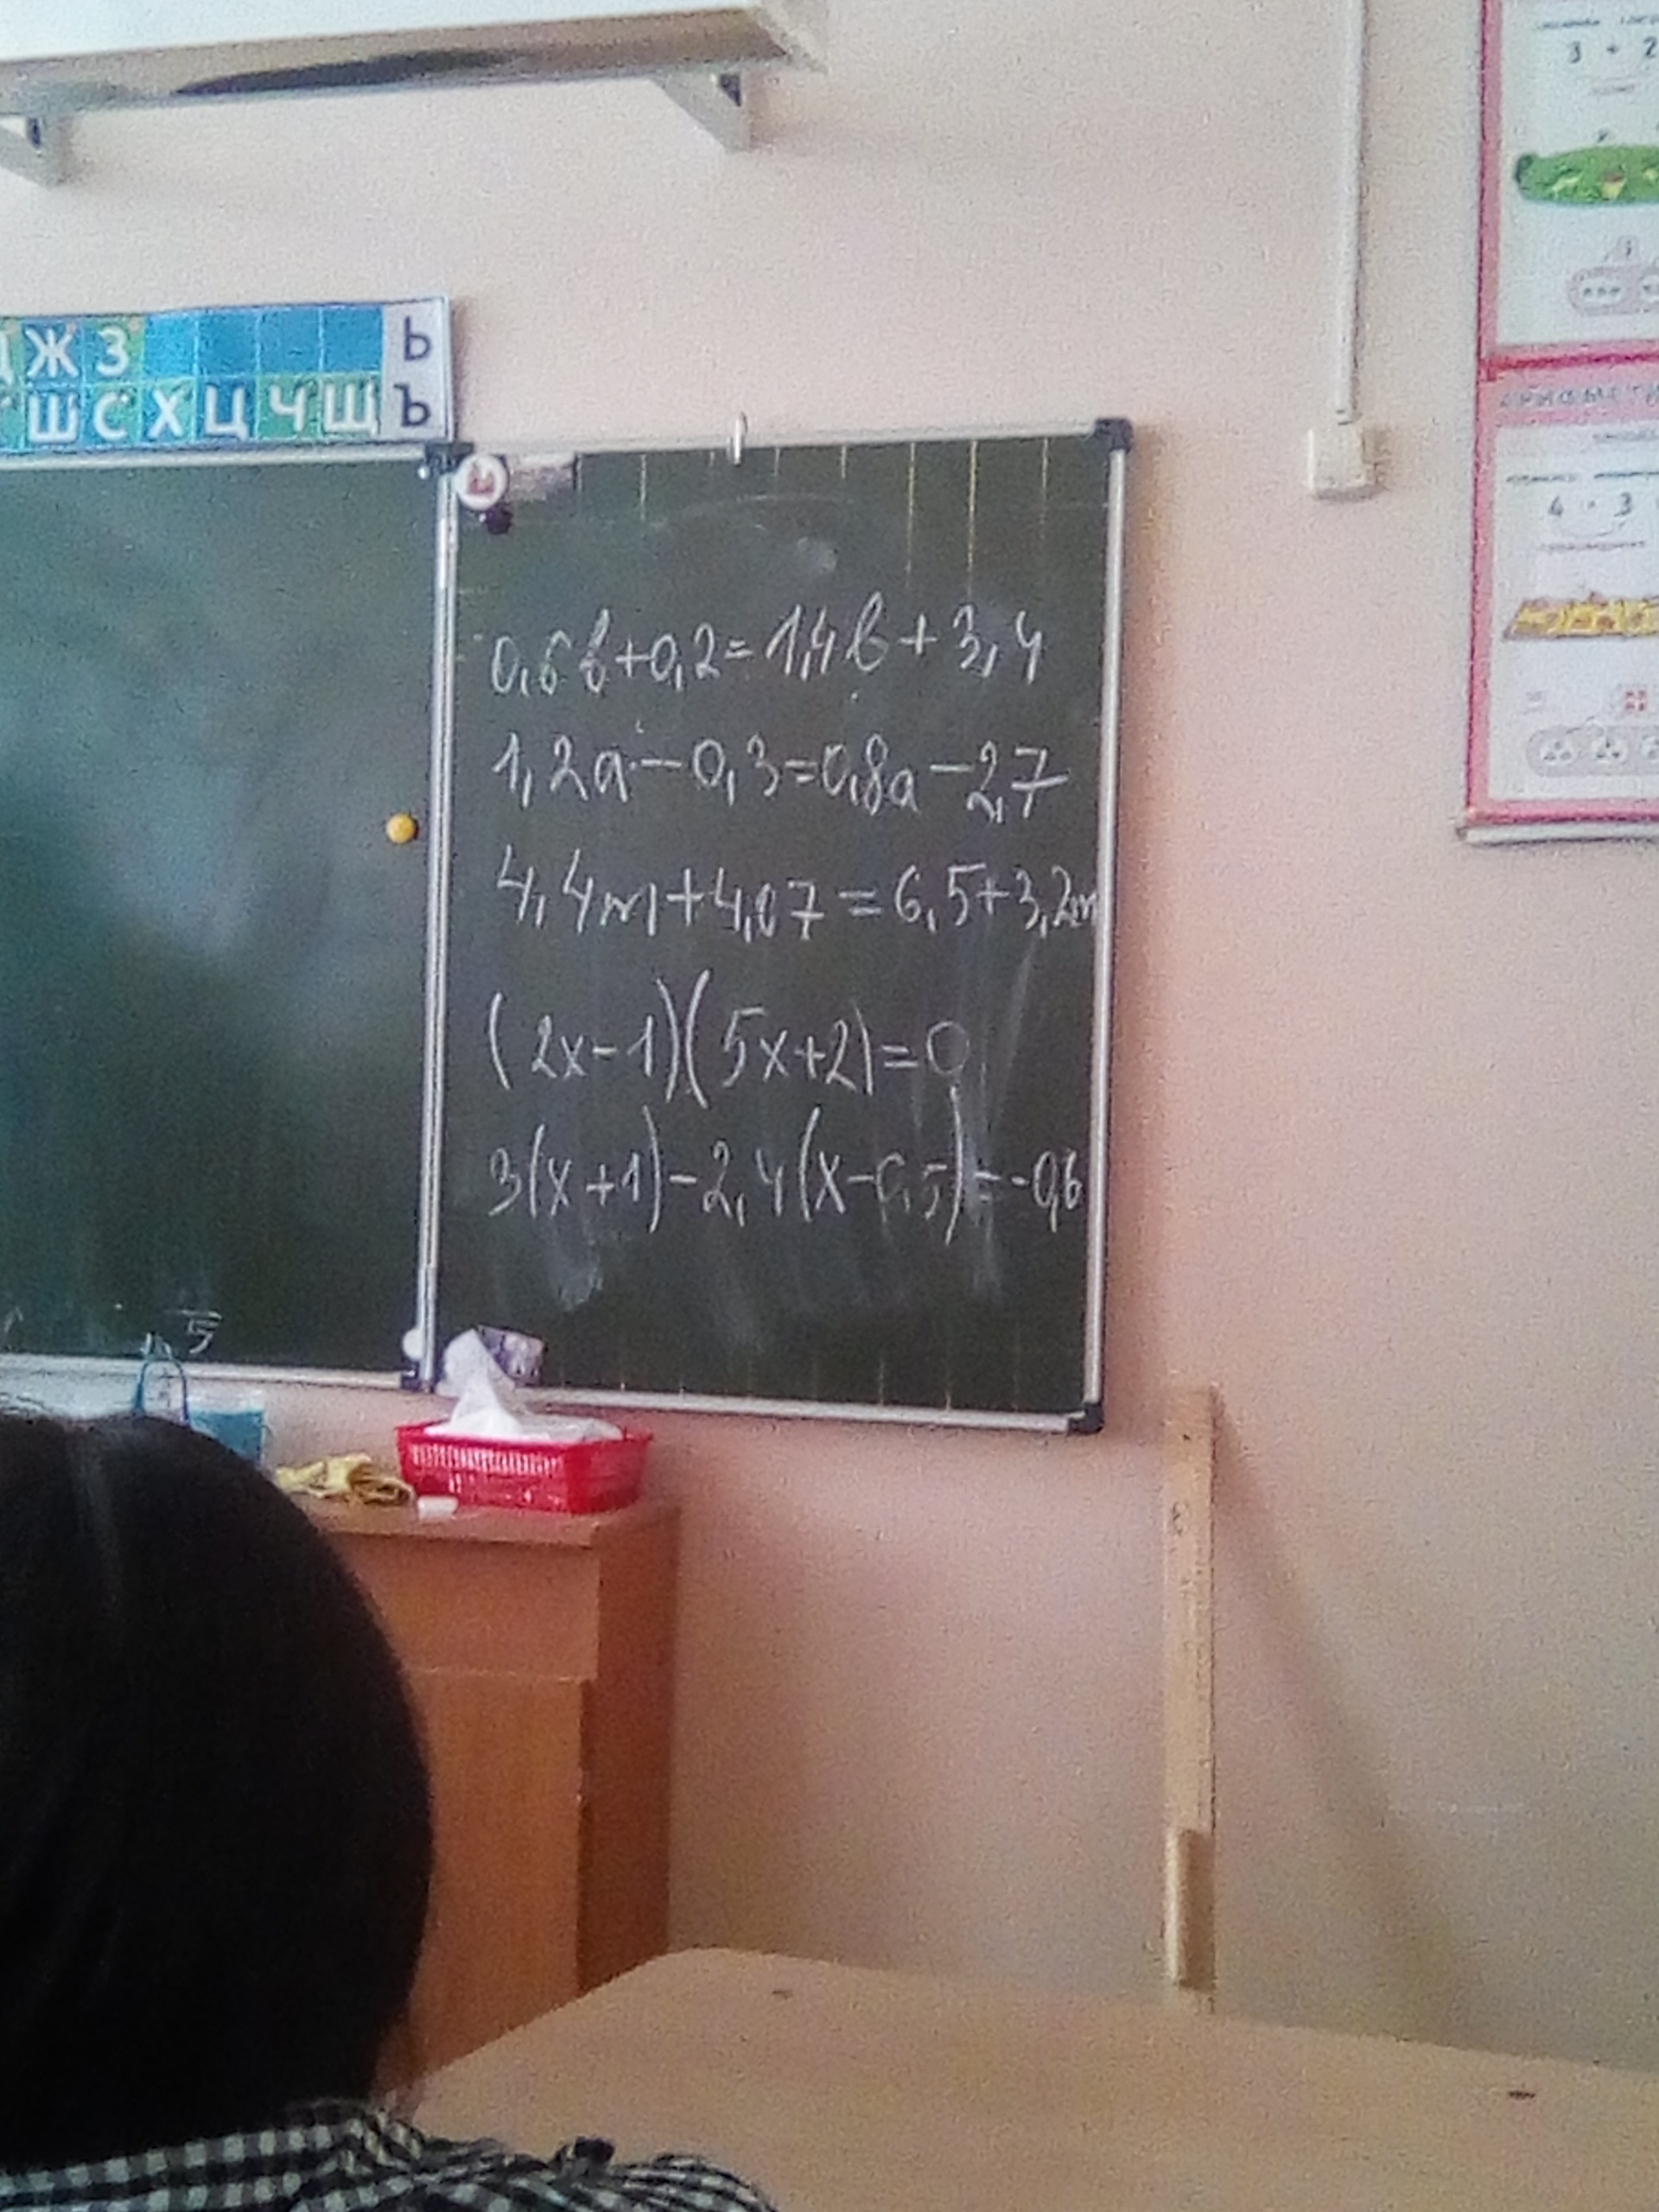 Ж З Ь
Ш С Х Ц Ч Щ Ъ
3 + 2
4 · 3
0,6b+0,2=1,4b+3,4
1,2a-0,3=0,8a-2,7
4,4m+4,07=6,5+3,2m
(2x-1)(5x+2)=0
3(x+1)-2,4(x-0,5)=-0,6
5